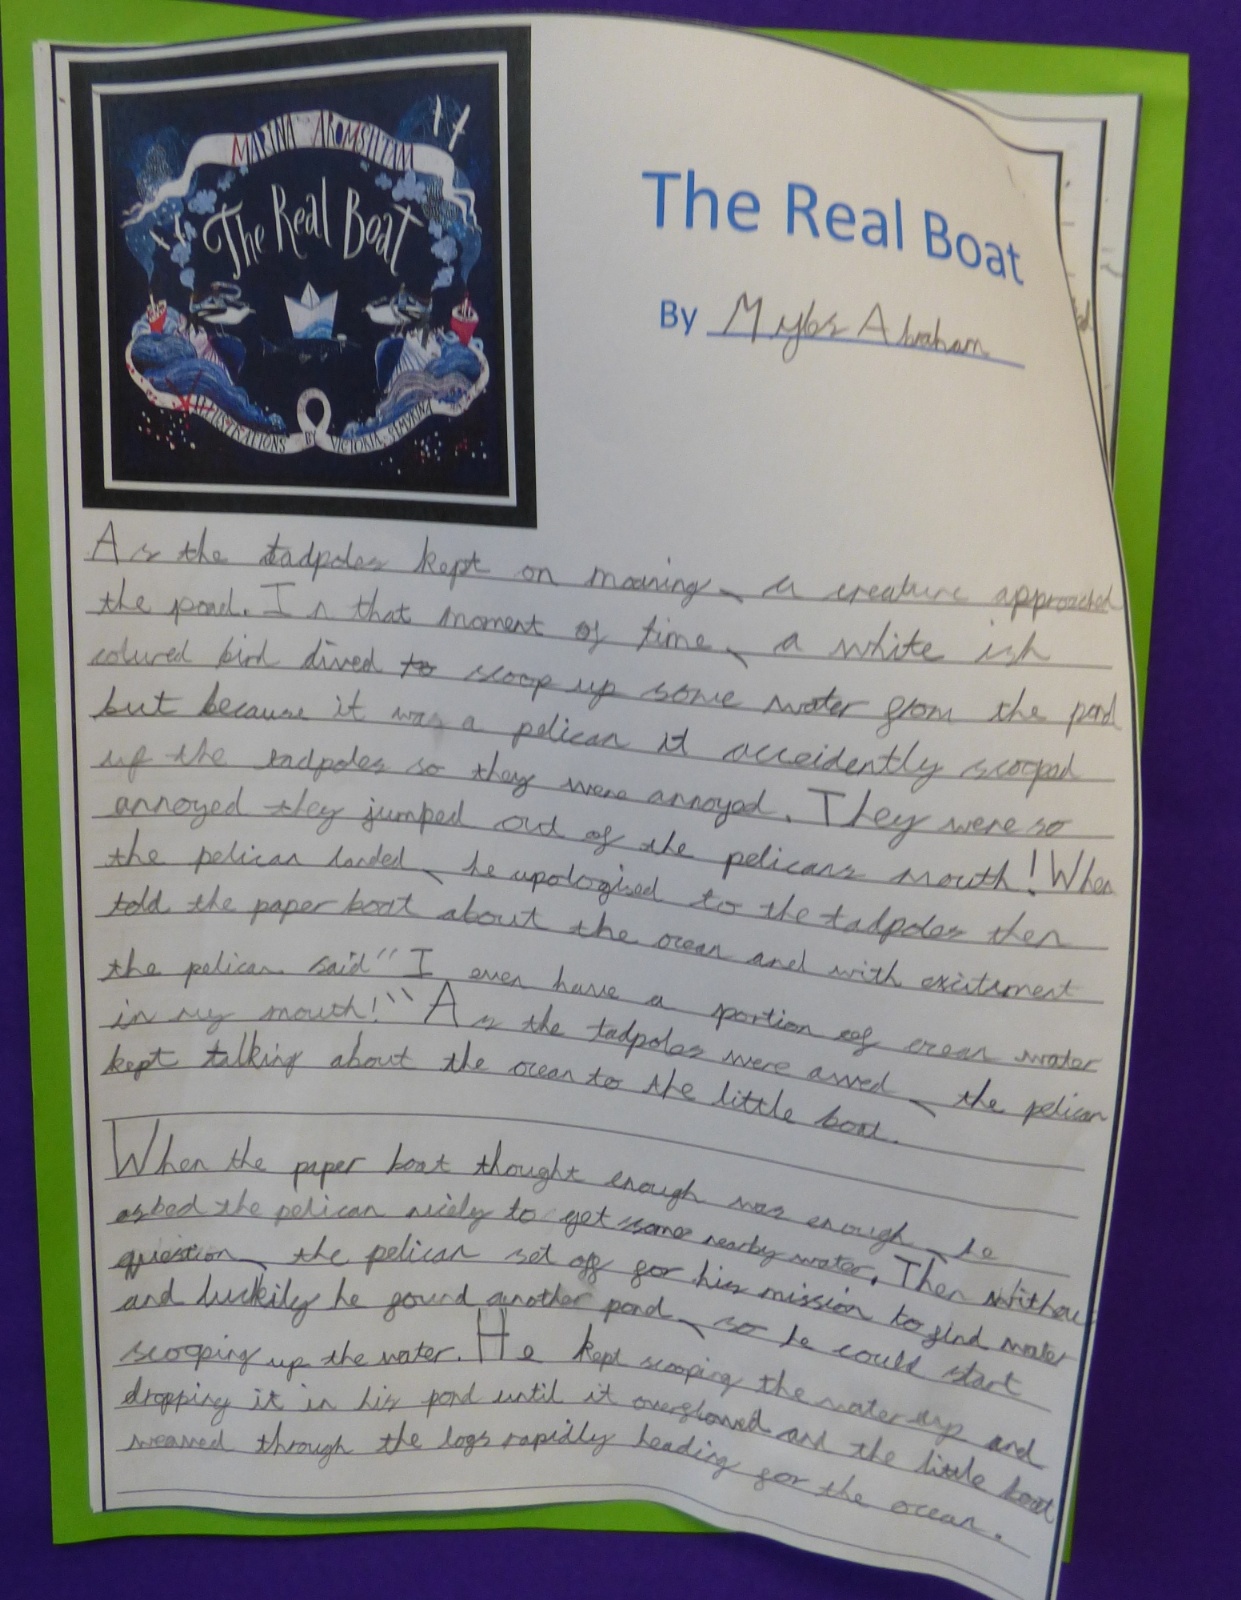 MARINA AROMSHTAM
The Real Boat
ILLUSTRATIONS BY VICTORIA SEMYKINA
The Real Boat
By Myles Abraham
As the tadpoles kept on moaning, a creature approached
the pond. In that moment of time, a white ish
colured bird dived to scoop up some water from the pond
but because it was a pelican it acceidently scooped
up the tadpoles so they were annoyed. They were so
annoyed they jumped out of the pelicans mouth! When
the pelican landed, he apologised to the tadpoles then
told the paper boat about the ocean and with excitement
the pelican said "I even have a portion of ocean water
in my mouth!" As the tadpoles were awed, the pelican
kept talking about the ocean to the little boat.
When the paper boat thought enough was enough, he
asked the pelican nicely to get some nearby water. Then withou
question, the pelican set off for his mission to find water
and luckily he found another pond, so he could start
scooping up the water. He kept scooping the water up and
dropping it in his pond until it overflowed and the little boat
weaved through the logs rapidly heading for the ocean.